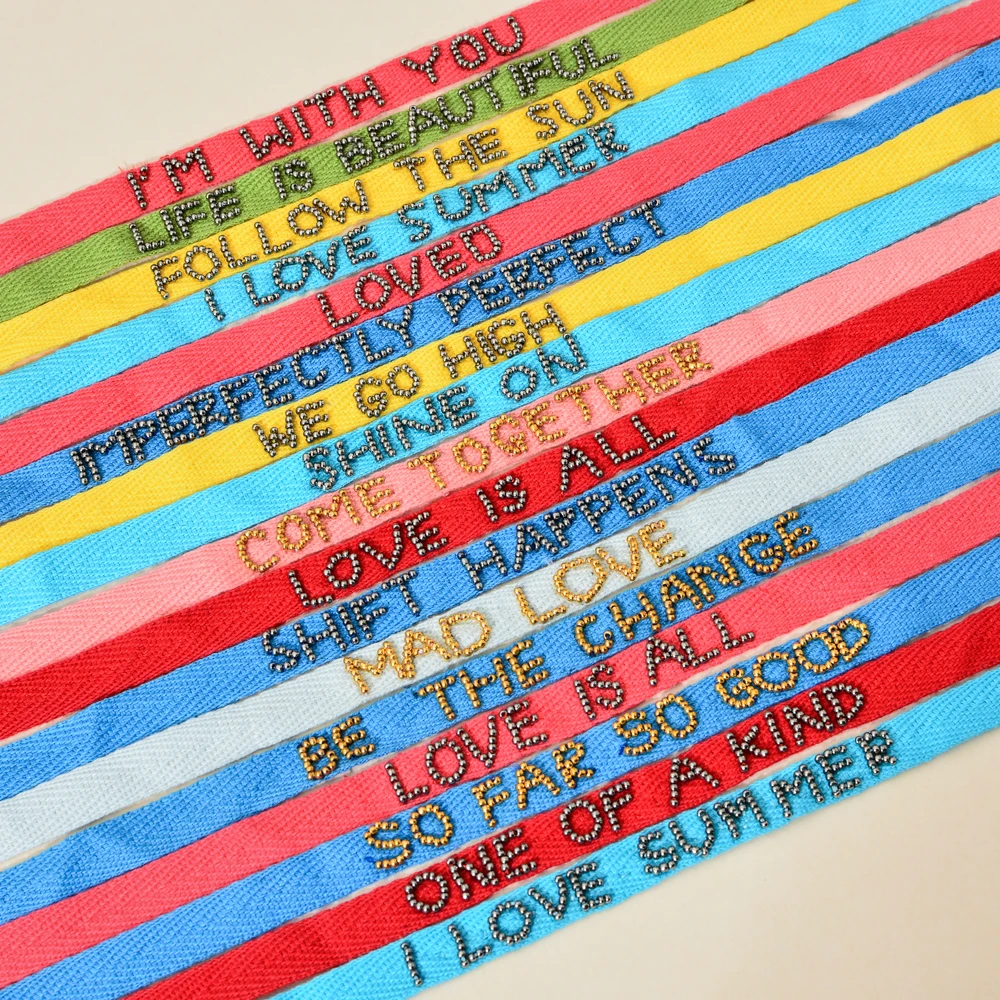 I'M WITH YOU
LIFE IS BEAUTIFUL
FOLLOW THE SUN
I LOVE SUMMER
LOVED
IMPERFECTLY PERFECT
WE GO HIGH
SHINE ON
COME TOGETHER
LOVE IS ALL
SHIFT HAPPENS
MAD LOVE
BE THE CHANGE
LOVE IS ALL
SO FAR SO GOOD
ONE OF A KIND
I LOVE SUMMER